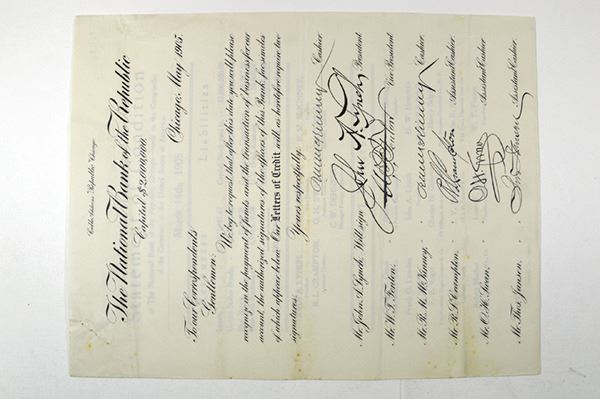 Cable Address "Republic" Chicago
The National Bank of the Republic
Capital $2,000,000.
Chicago, May 1905.
To our Correspondents
Gentlemen:
We beg to request that after this date you will please
recognize in the payment of funds and the transaction of business for our
account, the authorized signatures of the officers of this Bank, facsimiles
of which appear below. Our Letters of Credit will, as heretofore require two
signatures.
Yours respectfully,
Cashier.
Mr. John A. Lynch, Will sign John A. Lynch President
Mr. W. T. Fenton, " " Vice President
Mr. R. M. McKinney, " " Cashier.
Mr. R. L. Crampton, " " RL Crampton Assistant Cashier.
Mr. O. H. Swan, " " Assistant Cashier.
Mr. Thos. Jansen, " " Assistant Cashier.